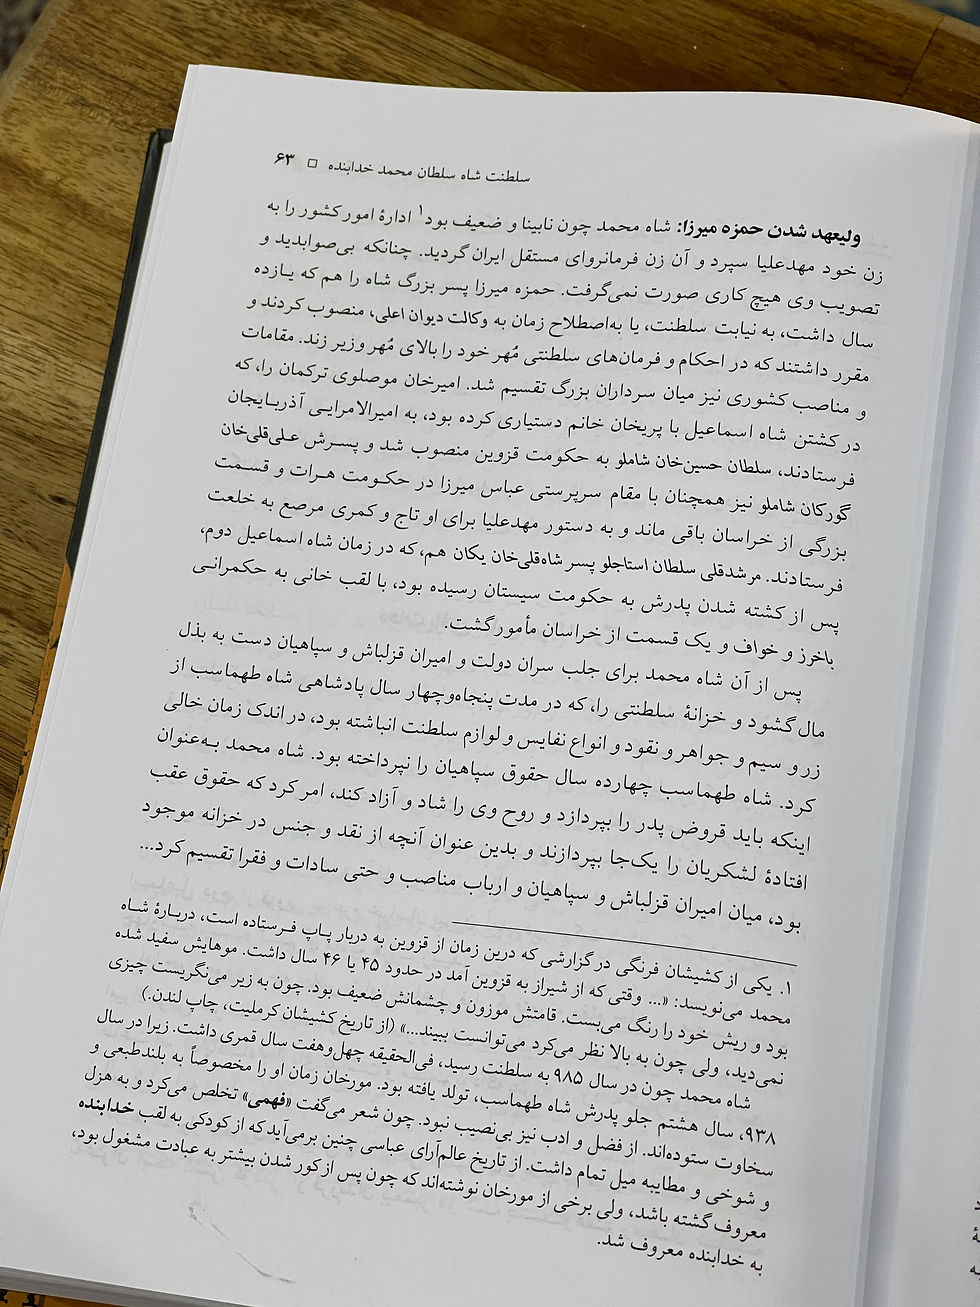 سلطنت شاه سلطان محمد خدابنده □ ۶۳
ولیعهد شدن حمزه میرزا: شاه محمد چون نابینا و ضعیف بود۱ ادارهٔ امور کشور را به
زن خود مهدعلیا سپرد و آن زن فرمانروای مستقل ایران گردید. چنانکه بی‌صوابدید و
تصویب وی هیچ کاری صورت نمی‌گرفت. حمزه میرزا پسر بزرگ شاه را هم که یازده
سال داشت، به نیابت سلطنت، یا به‌اصطلاح زمان به وکالت دیوان اعلی، منصوب کردند و
مقرر داشتند که در احکام و فرمان‌های سلطنتی مُهر خود را بالای مُهر وزیر زند. مقامات
و مناصب کشوری نیز میان سرداران بزرگ تقسیم شد. امیرخان موصلوی ترکمان را، که
در کشتن شاه اسماعیل با پریخان خانم دستیاری کرده بود، به امیرالامرایی آذربایجان
فرستادند، سلطان حسین‌خان شاملو به حکومت قزوین منصوب شد و پسرش علی‌قلی‌خان
گورکان شاملو نیز همچنان با مقام سرپرستی عباس میرزا در حکومت هرات و قسمت
بزرگی از خراسان باقی ماند و به دستور مهدعلیا برای او تاج و کمری مرصع به خلعت
فرستادند. مرشدقلی سلطان استاجلو پسر شاه‌قلی‌خان یکان هم، که در زمان شاه اسماعیل دوم،
پس از کشته شدن پدرش به حکومت سیستان رسیده بود، با لقب خانی به حکمرانی
باخرز و خواف و یک قسمت از خراسان مأمور گشت.
پس از آن شاه محمد برای جلب سران دولت و امیران قزلباش و سپاهیان دست به بذل
مال گشود و خزانهٔ سلطنتی را، که در مدت پنجاه‌وچهار سال پادشاهی شاه طهماسب از
زر و سیم و جواهر و نقود و انواع نفایس و لوازم سلطنت انباشته بود، در اندک زمان خالی
کرد. شاه طهماسب چهارده سال حقوق سپاهیان را نپرداخته بود. شاه محمد به‌عنوان
اینکه باید قروض پدر را بپردازد و روح وی را شاد و آزاد کند، امر کرد که حقوق عقب
افتادهٔ لشکریان را یک‌جا بپردازند و بدین عنوان آنچه از نقد و جنس در خزانه موجود
بود، میان امیران قزلباش و سپاهیان و ارباب مناصب و حتی سادات و فقرا تقسیم کرد...
۱. یکی از کشیشان فرنگی در گزارشی که درین زمان از قزوین به دربار پاپ فرستاده است، دربارهٔ شاه
محمد می‌نویسد: «... وقتی که از شیراز به قزوین آمد در حدود ۴۵ یا ۴۶ سال داشت. موهایش سفید شده
بود و ریش خود را رنگ می‌بست. قامتش موزون و چشمانش ضعیف بود. چون به زیر می‌نگریست چیزی
نمی‌دید، ولی چون به بالا نظر می‌کرد می‌توانست ببیند...» (از تاریخ کشیشان کرملیت، چاپ لندن.)
شاه محمد چون در سال ۹۸۵ به سلطنت رسید، فی‌الحقیقه چهل‌وهفت سال قمری داشت. زیرا در سال
۹۳۸، سال هشتم جلو پدرش شاه طهماسب، تولد یافته بود. مورخان زمان او را مخصوصاً به بلندطبعی و
سخاوت ستوده‌اند. از فضل و ادب نیز بی‌نصیب نبود. چون شعر می‌گفت «فهمی» تخلص می‌کرد و به هزل
و شوخی و مطایبه میل تمام داشت. از تاریخ عالم‌آرای عباسی چنین برمی‌آید که از کودکی به لقب خدابنده
معروف گشته باشد، ولی برخی از مورخان نوشته‌اند که چون پس از کور شدن بیشتر به عبادت مشغول بود،
به خدابنده معروف شد.